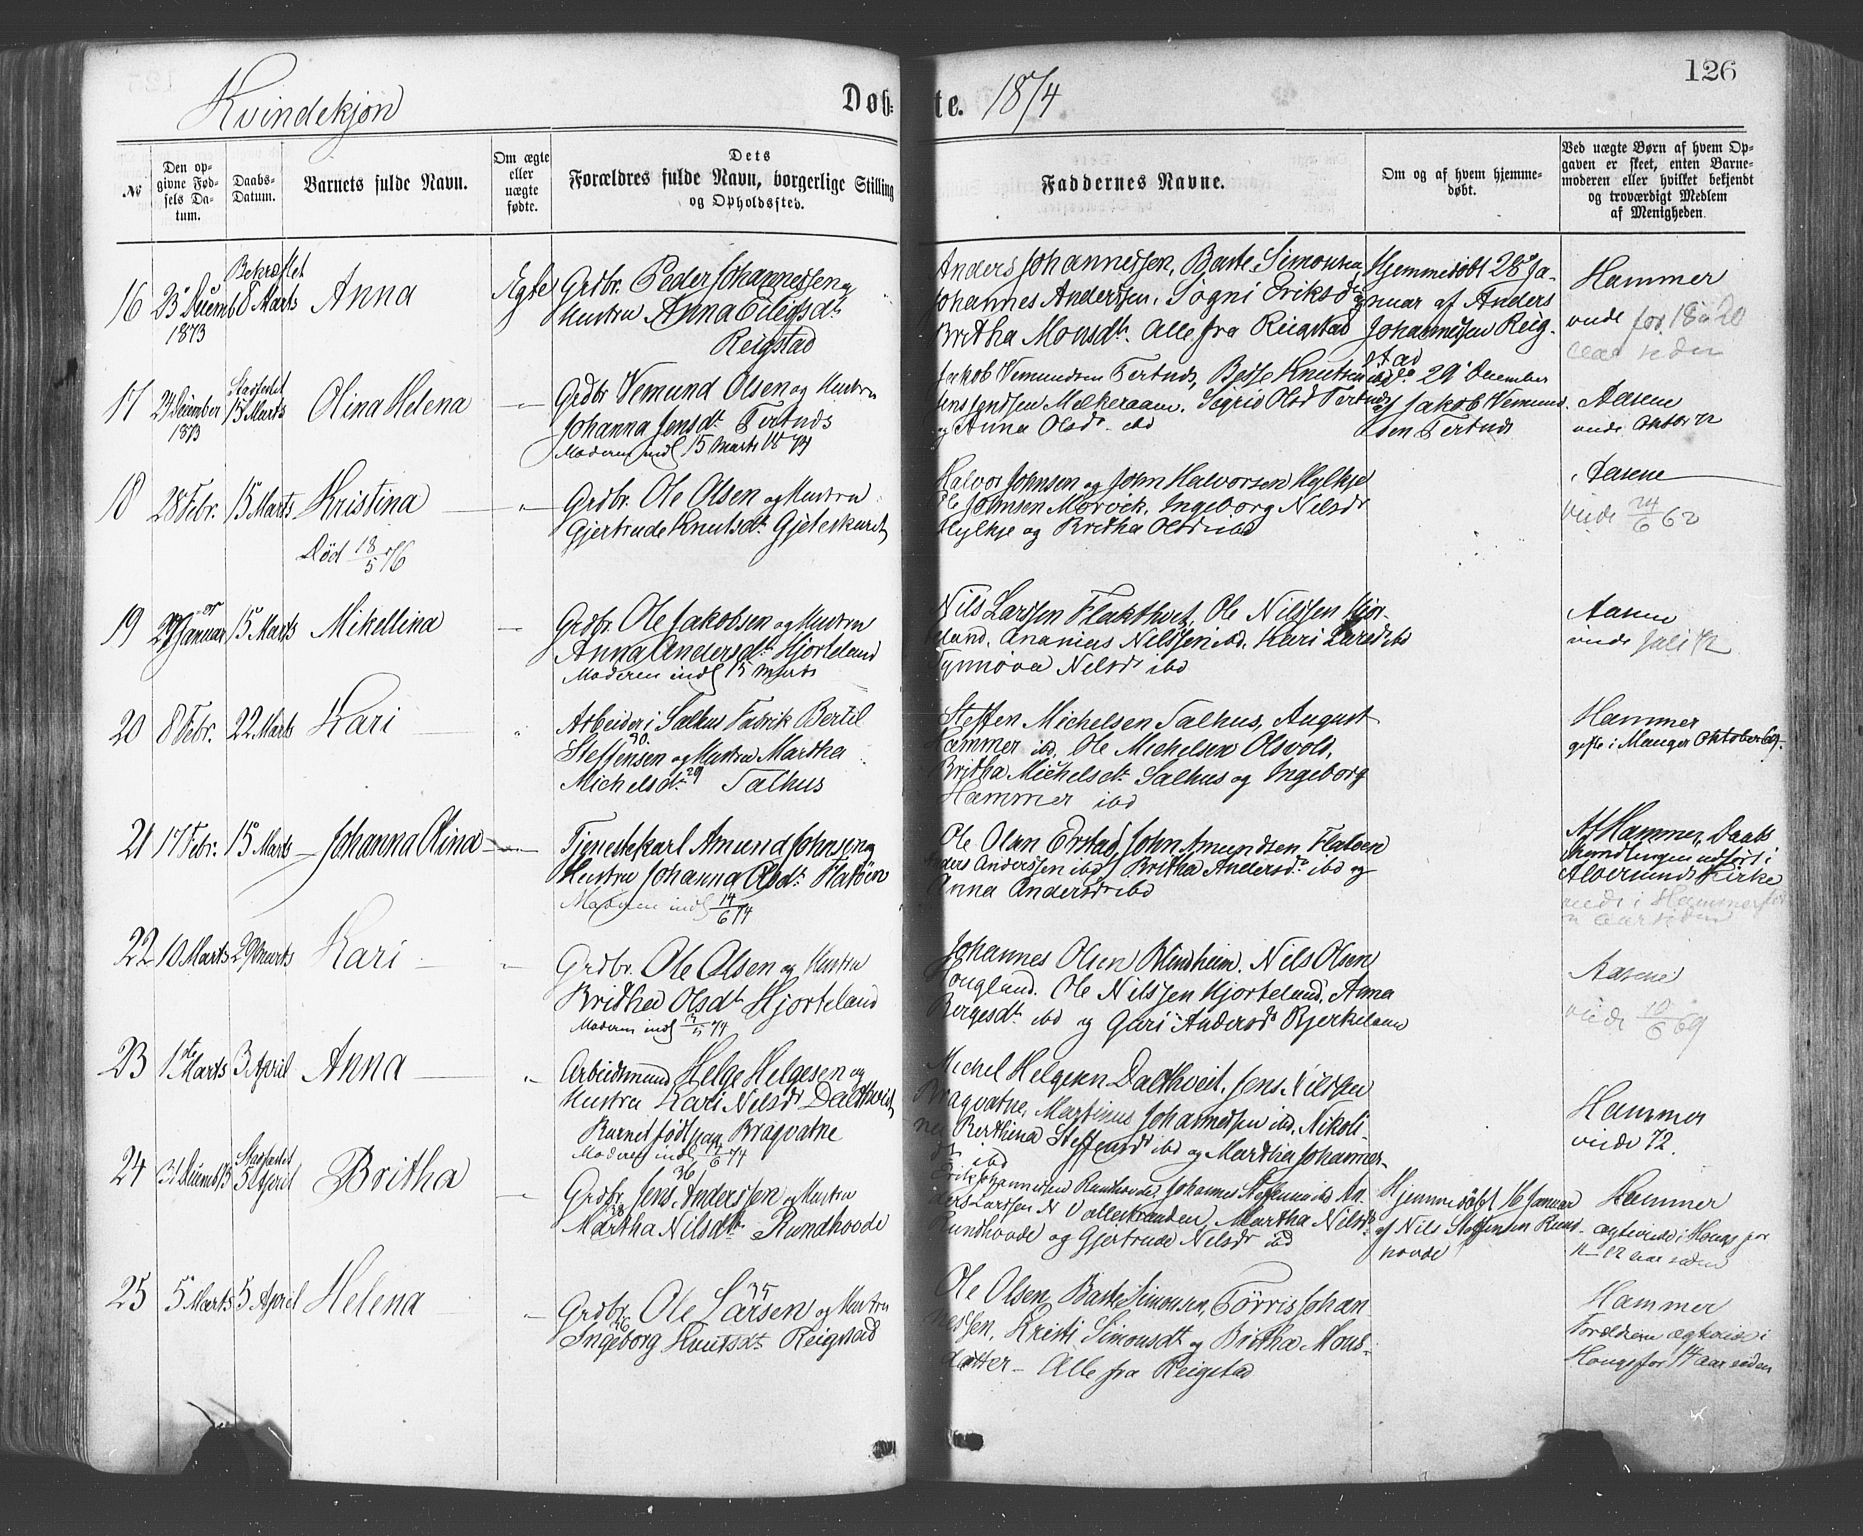 126
Kvindekjøn
Døbte. 1874
No
Den opgivne Fødsels Datum.
Daabs-Datum.
Barnets fulde Navn.
Om ægte eller uægte fødte.
Dets Forældres fulde Navn, borgerlige Stilling og Opholdssted.
Faddernes Navne.
Om og af hvem hjemmedøbt.
Ved uægte Børn af hvem Opgaven er skeet, enten Barnemoderen eller hvilket bekjendt og troværdigt Medlem af Menigheden.
16
23 Decemb
1873
Bekræftet
8 Marts
Anna
Ægte
Grdbr. Peder Johannessen og
Hustru Anna
Reigstad
Anders Johannessen, Baste Simonsen,
Johannes Anderssen, Søgni Eriksd og
Britha Monsdt. Alle fra Reigstad
Hjemmedøbt 28 Ja-
nuar af Anders
Johannessen Reig-
stad
Hammer
viede for 18 a 20
Aar siden
17
24 December
1873
Stadfestet
15 Marts
Olina Helena
Grdbr Vemund Olsen og Hustru
Johanna Jensdt. Tertnæs
Moderen indl 15 Marts 1874
Jakob Vemundsen Tertnæs, Knutsen
Jenssen Melkeraaen. Sigrid Olsd Tertnæs
og Anna Olsdt. ibd
29 December
af Jakob Vemund-
sen Tertnæs
Aasene
viede Oktob 72
18
28 Febr.
15 Marts
Kristina
Død 18/5 76
Grdbr. Ole Olsen og Hustru
Gjertrude Knutsdt. Gjeteskaret
Halvor Johnsen og John Halvorsen Hylkje
Ole Johnsen Morvik, Ingeborg Nilsdt
Hylkje og Britha Olsdt ibd
Aasene
viede 24/6 62
19
Januar
15 Marts
Mikellina
Grdbr. Ole Jakobsen og Hustru
Anna Andersdt. Hjorteland
Moderen indl 15 Marts
Nils Larssen Flaktveit, Ole Nilssen Hjor-
teland, Ananias Nilssen ibd. Kari Larsdt ibd
Synnøva Nelsdt ibd
Aasene
viede Juli 72
20
8 Febr.
22 Marts
Kari
Arbeider i Salhus Fabrik Bertil
Steffensen 30 og Hustru Martha
Michelsdt. 29 Salhus
Steffen Michelsen Salhus, August
Hammer ibd. Ole Michelsen Olsvold,
Britha Michelsdt. Salhus og Ingeborg
Hammer ibd
Hammer
gifte i Manger Oktober 69.
21
17 Febr.
15 Marts
Johanna Olina
Tjenestekarl Amund Johnsen og
Hustru Johanna Olsdt. Flatøen
Moderen indl 14/6 74
Ole Olsen Erstad, John Amundsen Flatøen
Anders Anderssen ibd, Britha Andersdt. ibd og
Anna Andersdt ibd
Af Hammer, Daabs
handlingen udført i
Alversund Kirke
viede i Hammer for
Aar siden
22
10 Marts
29 Marts
Kari
Grdbr. Ole Olsen og Hustru
Britha Olsdt Hjorteland
Moderen indl
Johannes Olsen Blindheim. Nils Olsen
Hougland. Ole Nilssen Hjorteland, Anna
Børgesdt. ibd og Guri Andersdt Bjerkelaen
Aasene
viede 10/6 69
23
1ste
Marts
3 April
Anna
Arbeidsmand Helge Helgesen og
Hustru Kari Nilsdt Daltveit,
Barnet født paa Bragvatne
Moderen indl 14/6 74
Michel Helgesen Daltveit, Jens Nilssen
Bragvatne, Martinus Johannessen ibd. Nikoli-
ne Berthina Steffensdt ibd og Martha Johannes-
dt ibd
Hammer
viede 72.
24
31 Decemb 73
Stadfestet
5 April
Britha
Grdbr. Jens Anderssen 36 og Hustru
Martha Nilsdt. 38 Rundhovde
Erik Johannessen Rundhovde, Johannes Steffensen ibd An-
ders Larssen N Vallestranden, Martha Nilsdt
Rundhovde og Gjertrude Nilsdt ibd
Hjemmedøbt 16 Januar
af Nils Steffensen Rund-
hovde
Hammer
ægteviede i Hougs for
11-12 Aar siden
25
5 Marts
5 April
Helena
Grdbr. Ole Larsen 35 og Hustru
Ingeborg Knutsdt. Reigstad
Ole Olsen, Baste Simonsen, Tørris Johan-
nessen, Kristi Simonsdt og Britha Mons-
datter - Alle fra Reigstad
Hammer
Forældrene ægteviede i
Hougs for 14 Aar siden